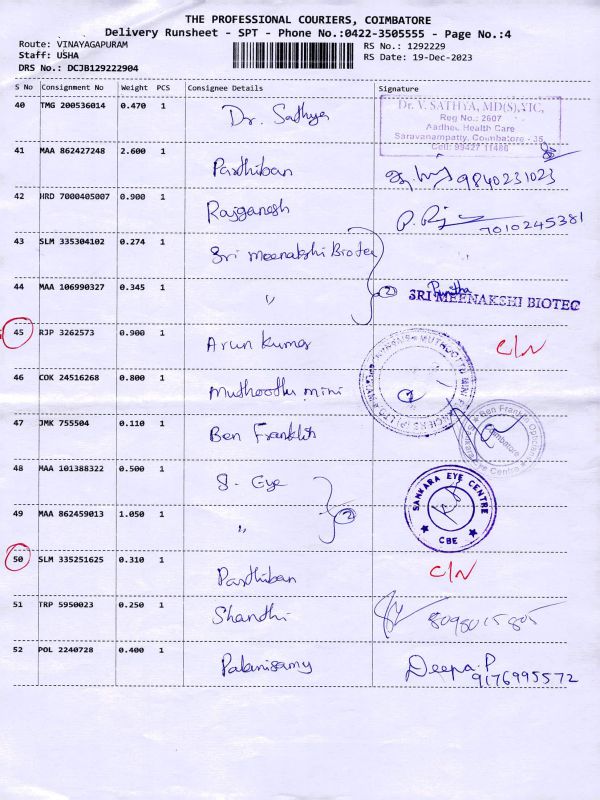 THE PROFESSIONAL COURIERS, COIMBATORE
Delivery Runsheet - SPT - Phone No.:0422-3505555 - Page No.:4
Route: VINAYAGAPURAM
Staff: USHA
DRS No.: DCJB129222904
RS No.: 1292229
RS Date: 19-Dec-2023
S No Consignment No Weight PCS Consignee Details Signature
40 TMG 200536014 0.470 1 Dr. Sathya
Dr. V. SATHYA, MD(S),VTC,
Reg No.: 2607
Aadhee Health Care
Saravanampatty, Coimbatore - 35
Cell: 99427 11486
41 MAA 862427248 2.600 1 Parthiban 9840231023
42 HRD 7000405007 0.900 1 Rajganesh 7010245381
43 SLM 335304102 0.274 1 Sri Meenakshi Biotec
44 MAA 106990327 0.345 1 " 2 Punitha
SRI MEENAKSHI BIOTEC
45 RJP 3262573 0.900 1 Arun Kumar C/N
46 COK 24516268 0.800 1 Muthoothu mini
47 JMK 755504 0.110 1 Ben Franklin
Ben Franklin Opticians
Coimbatore
Eye Centre
48 MAA 101388322 0.500 1 S. Eye
49 MAA 862459013 1.050 1 " 2
SANKARA EYE CENTRE
CBE
50 SLM 335251625 0.310 1 Parthiban C/N
51 TRP 5950023 0.250 1 Shandhi 8098015805
52 POL 2240728 0.400 1 Palanisamy Deepa.P
9176995572